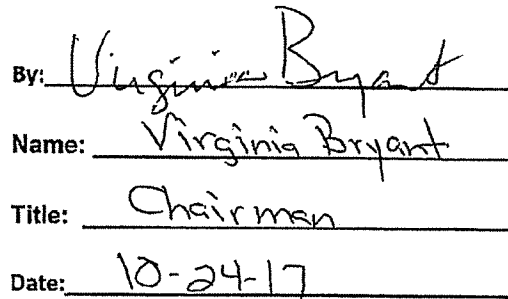 By: Virginia Bryant
Name: Virginia Bryant
Title: Chairman
Date: 10-24-17